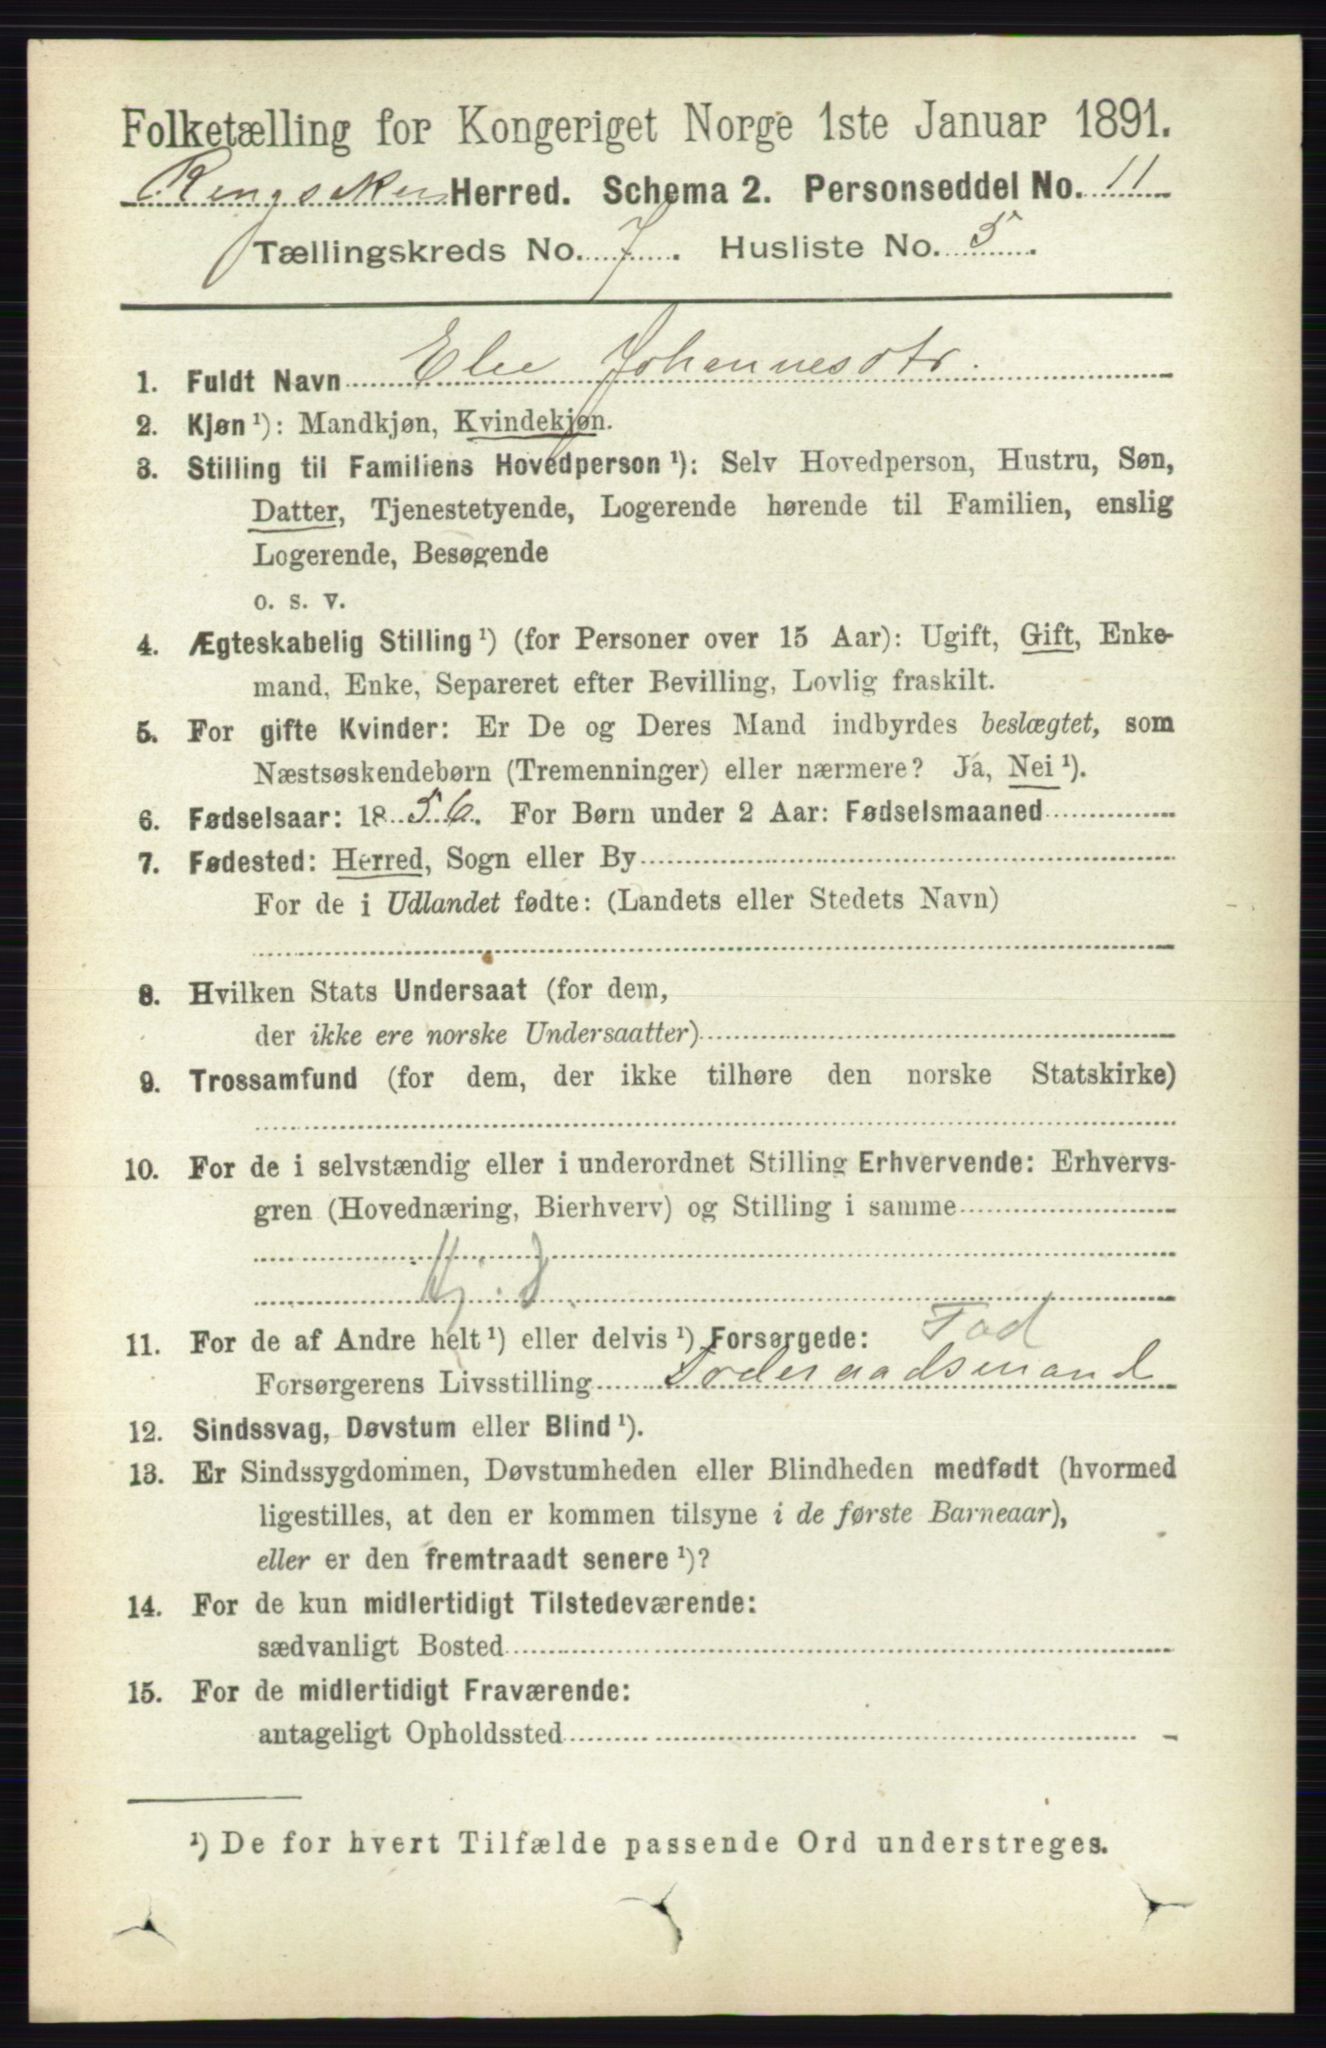 Folketælling for Kongeriget Norge 1ste Januar 1891.
Ringsaker Herred. Schema 2. Personseddel No. 11
Tællingskreds No. 7. Husliste No. 5.
1. Fuldt Navn Elie Johannesdtr.
2. Kjøn ¹): Mandkjøn, Kvindekjøn.
3. Stilling til Familiens Hovedperson ¹): Selv Hovedperson, Hustru, Søn,
Datter, Tjenestetyende, Logerende hørende til Familien, enslig
Logerende, Besøgende
o. s. v.
4. Ægteskabelig Stilling ¹) (for Personer over 15 Aar): Ugift, Gift, Enke-
mand, Enke, Separeret efter Bevilling, Lovlig fraskilt.
5. For gifte Kvinder: Er De og Deres Mand indbyrdes beslægtet, som
Næstsøskendebørn (Tremenninger) eller nærmere? Ja, Nei ¹).
6. Fødselsaar: 1856. For Børn under 2 Aar: Fødselsmaaned
7. Fødested: Herred, Sogn eller By
For de i Udlandet fødte: (Landets eller Stedets Navn)
8. Hvilken Stats Undersaat (for dem,
der ikke ere norske Undersaatter)
9. Trossamfund (for dem, der ikke tilhøre den norske Statskirke)
10. For de i selvstændig eller i underordnet Stilling Erhvervende: Erhvervs-
gren (Hovednæring, Bierhverv) og Stilling i samme
11. For de af Andre helt ¹) eller delvis ¹) Forsørgede:
Forsørgerens Livsstilling Føderaadsmand
12. Sindssvag, Døvstum eller Blind ¹).
13. Er Sindssygdommen, Døvstumheden eller Blindheden medfødt (hvormed
ligestilles, at den er kommen tilsyne i de første Barneaar),
eller er den fremtraadt senere ¹)?
14. For de kun midlertidigt Tilstedeværende:
sædvanligt Bosted
15. For de midlertidigt Fraværende:
antageligt Opholdssted
¹) De for hvert Tilfælde passende Ord understreges.